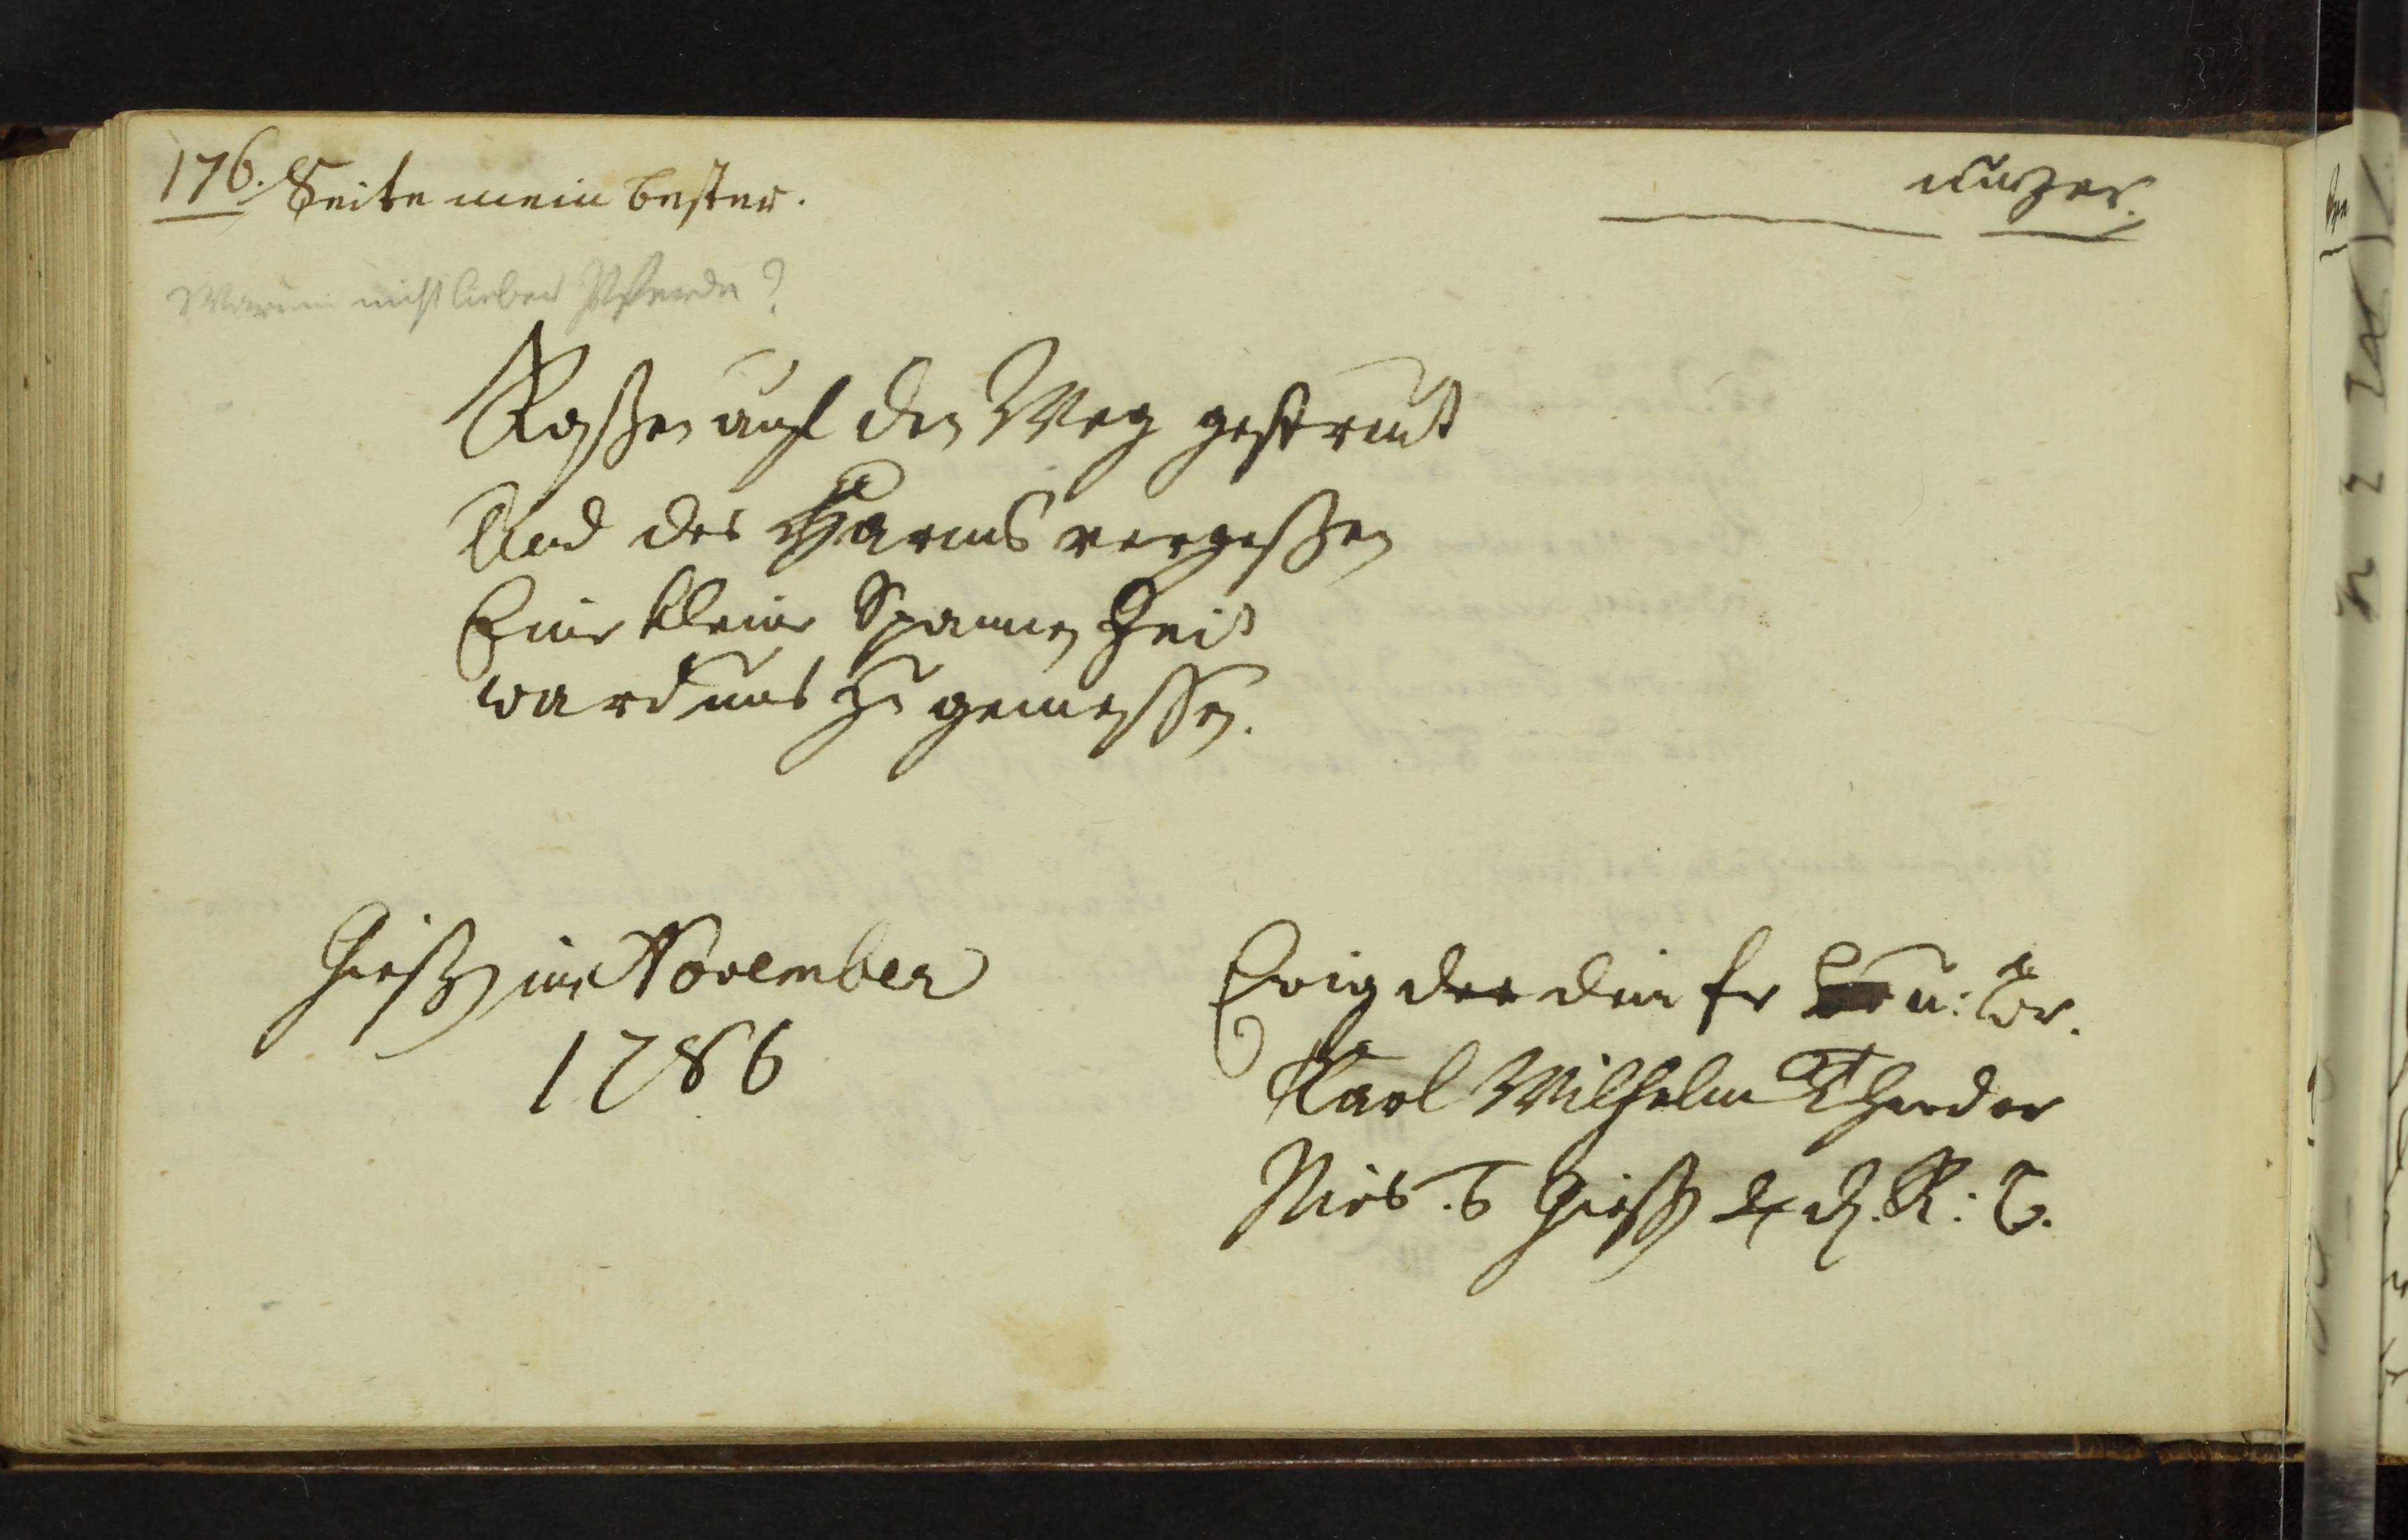 176. Seite mein bester.
nuzer.
Warum nicht lieber Pferde?
Roßen auf den Weg gestreut
Und des Harms vergeßen
Eine kleine Spannen Zeit
ward uns zu gemessen.
Gießen im November
1786
Ewig der dein fr u: br.
Karl Wilhelm Theodor
Gießen d. R: